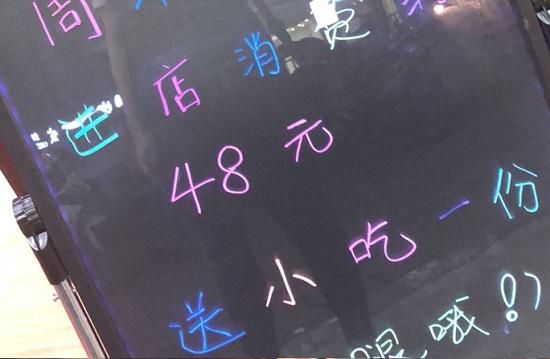 周
进店消费
48元
送小吃一份
哦!)